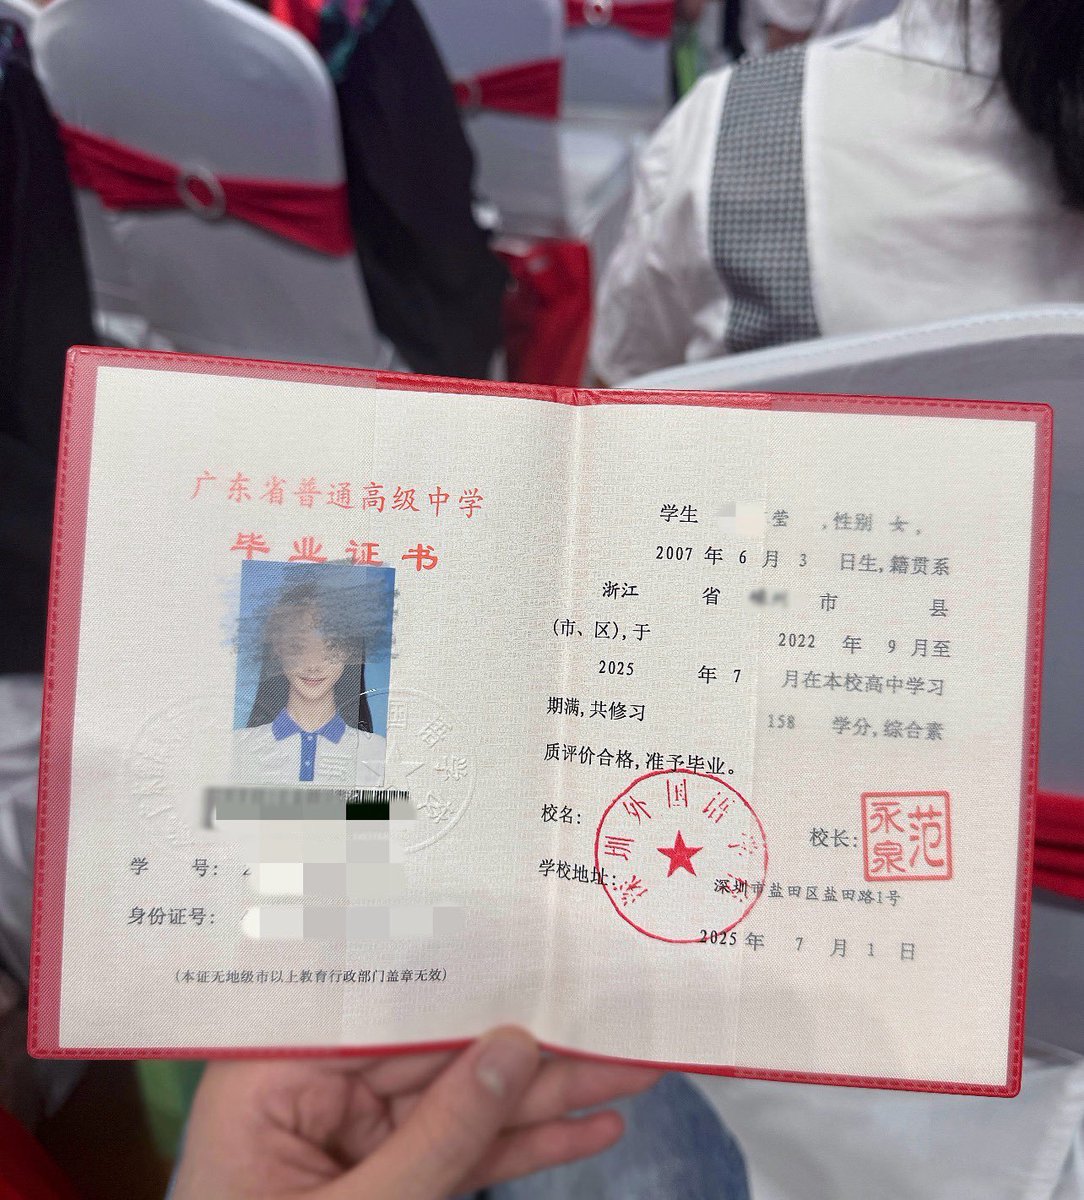 广东省普通高级中学
毕业证书
学 号: 2
身份证号:
(本证无地级市以上教育行政部门盖章无效)
学生 莹 ,性别 女,
2007 年 6 月 3 日生,籍贯系
浙江 省 市 县
(市、区),于 2022 年 9 月至
2025 年 7 月在本校高中学习
期满,共修习 158 学分,综合素
质评价合格,准予毕业。
校名:
深圳外国语学校
校长:
范永泉
学校地址: 深圳市盐田区盐田路1号
2025 年 7 月 1 日